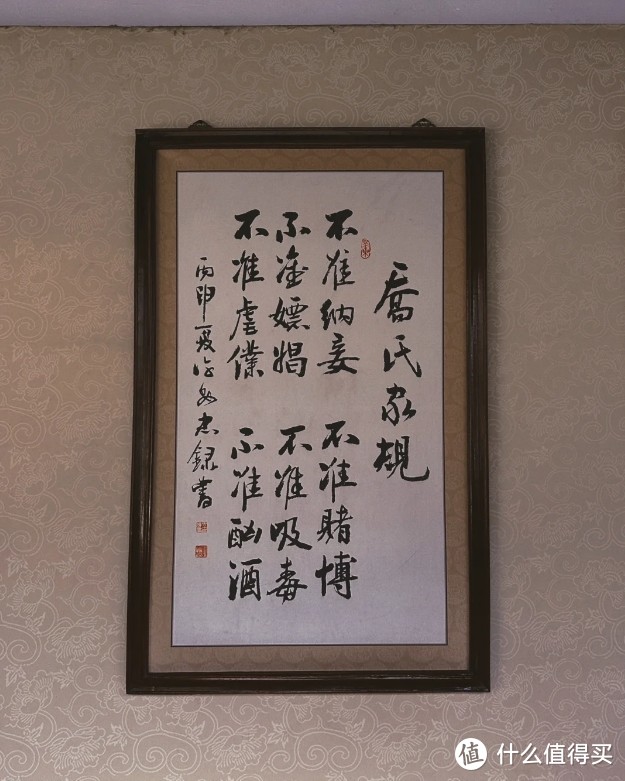 喬氏家規
不准納妾 不准賭博
不准嫖娼 不准吸毒
不准虐僕 不准酗酒
丙申夏 錄書
值 什么值得买